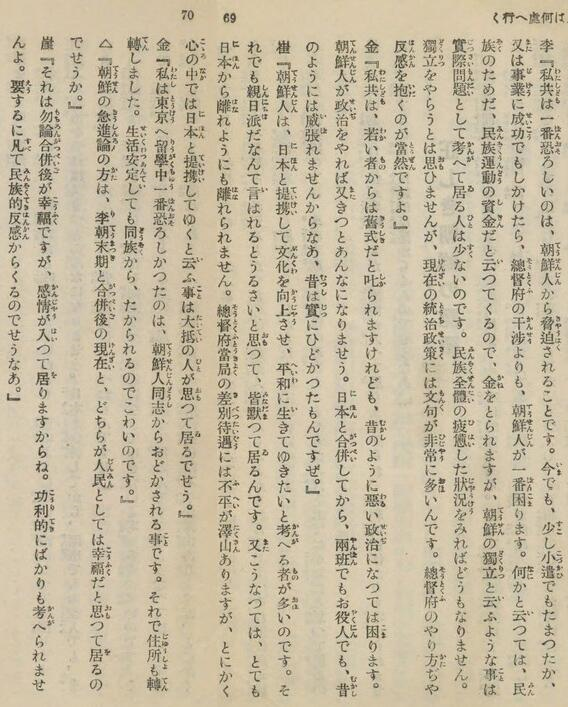 は何處へ行く
69
李『私共は一番恐ろしいのは、朝鮮人から脅迫されることです。今でも、少し小遣でもたまつたか、
又は事業に成功でもしかけたら、總督府の干渉よりも、朝鮮人が一番困ります。何かと云つては、民
族のためだ、民族運動の資金だと云つてくるので、金をとられますが、朝鮮の獨立と云ふような事は
實際問題として考へて居る人は少ないのです。民族全體の疲憊した狀況をみればどうもなりません。
獨立をやらうとは思ひませんが、現在の統治政策には文句が非常に多いんです。總督府のやり方ぢや
反感を抱くのが當然ですよ。』
金『私共は、若い者からは舊式だと叱られますけれども、昔のように惡い政治になつては困ります。
朝鮮人が政治をやれば又きつとあんなになりませう。日本と合併してから、兩班でもお役人でも、昔
のようには威張れませんからなあ、昔は實にひどかつたもんですぜ。』
崔『朝鮮人は、日本と提携して文化を向上させ、平和に生きてゆきたいと考へる者が多いのです。そ
れでも親日派だなんて言はれるとうるさいと思つて、皆默つて居るんです。又こうなつては、とても
日本から離れようにも離れられません。總督府當局の差別待遇には不平が澤山ありますが、とにかく
70
心の中では日本と提携してゆくと云ふ事は大抵の人が思つて居るでせう。』
金『私は東京へ留學中一番恐ろしかつたのは、朝鮮人同志からおどかされる事です。それで住所も轉
轉しました。生活安定しても同族から、たかられるのでこわいのです。』
△『朝鮮の急進論の方は、李朝末期と合併後の現在と、どちらが人民としては幸福だと思つて居るの
でせうか。』
崔『それは勿論合併後が幸福ですが、感情が入つて居りますからね。功利的にばかりも考へられませ
んよ。要するに凡て民族的反感からくるのでせうなあ。』